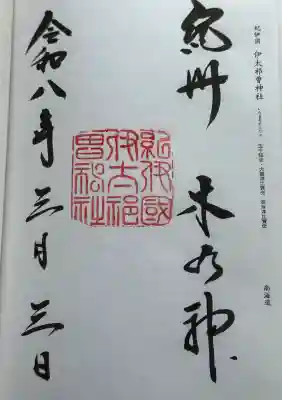 紀伊国 伊太祁曽神社
南海道
紀州 木の神
紀伊國
伊太祁
曽神社
令和八年三月三日